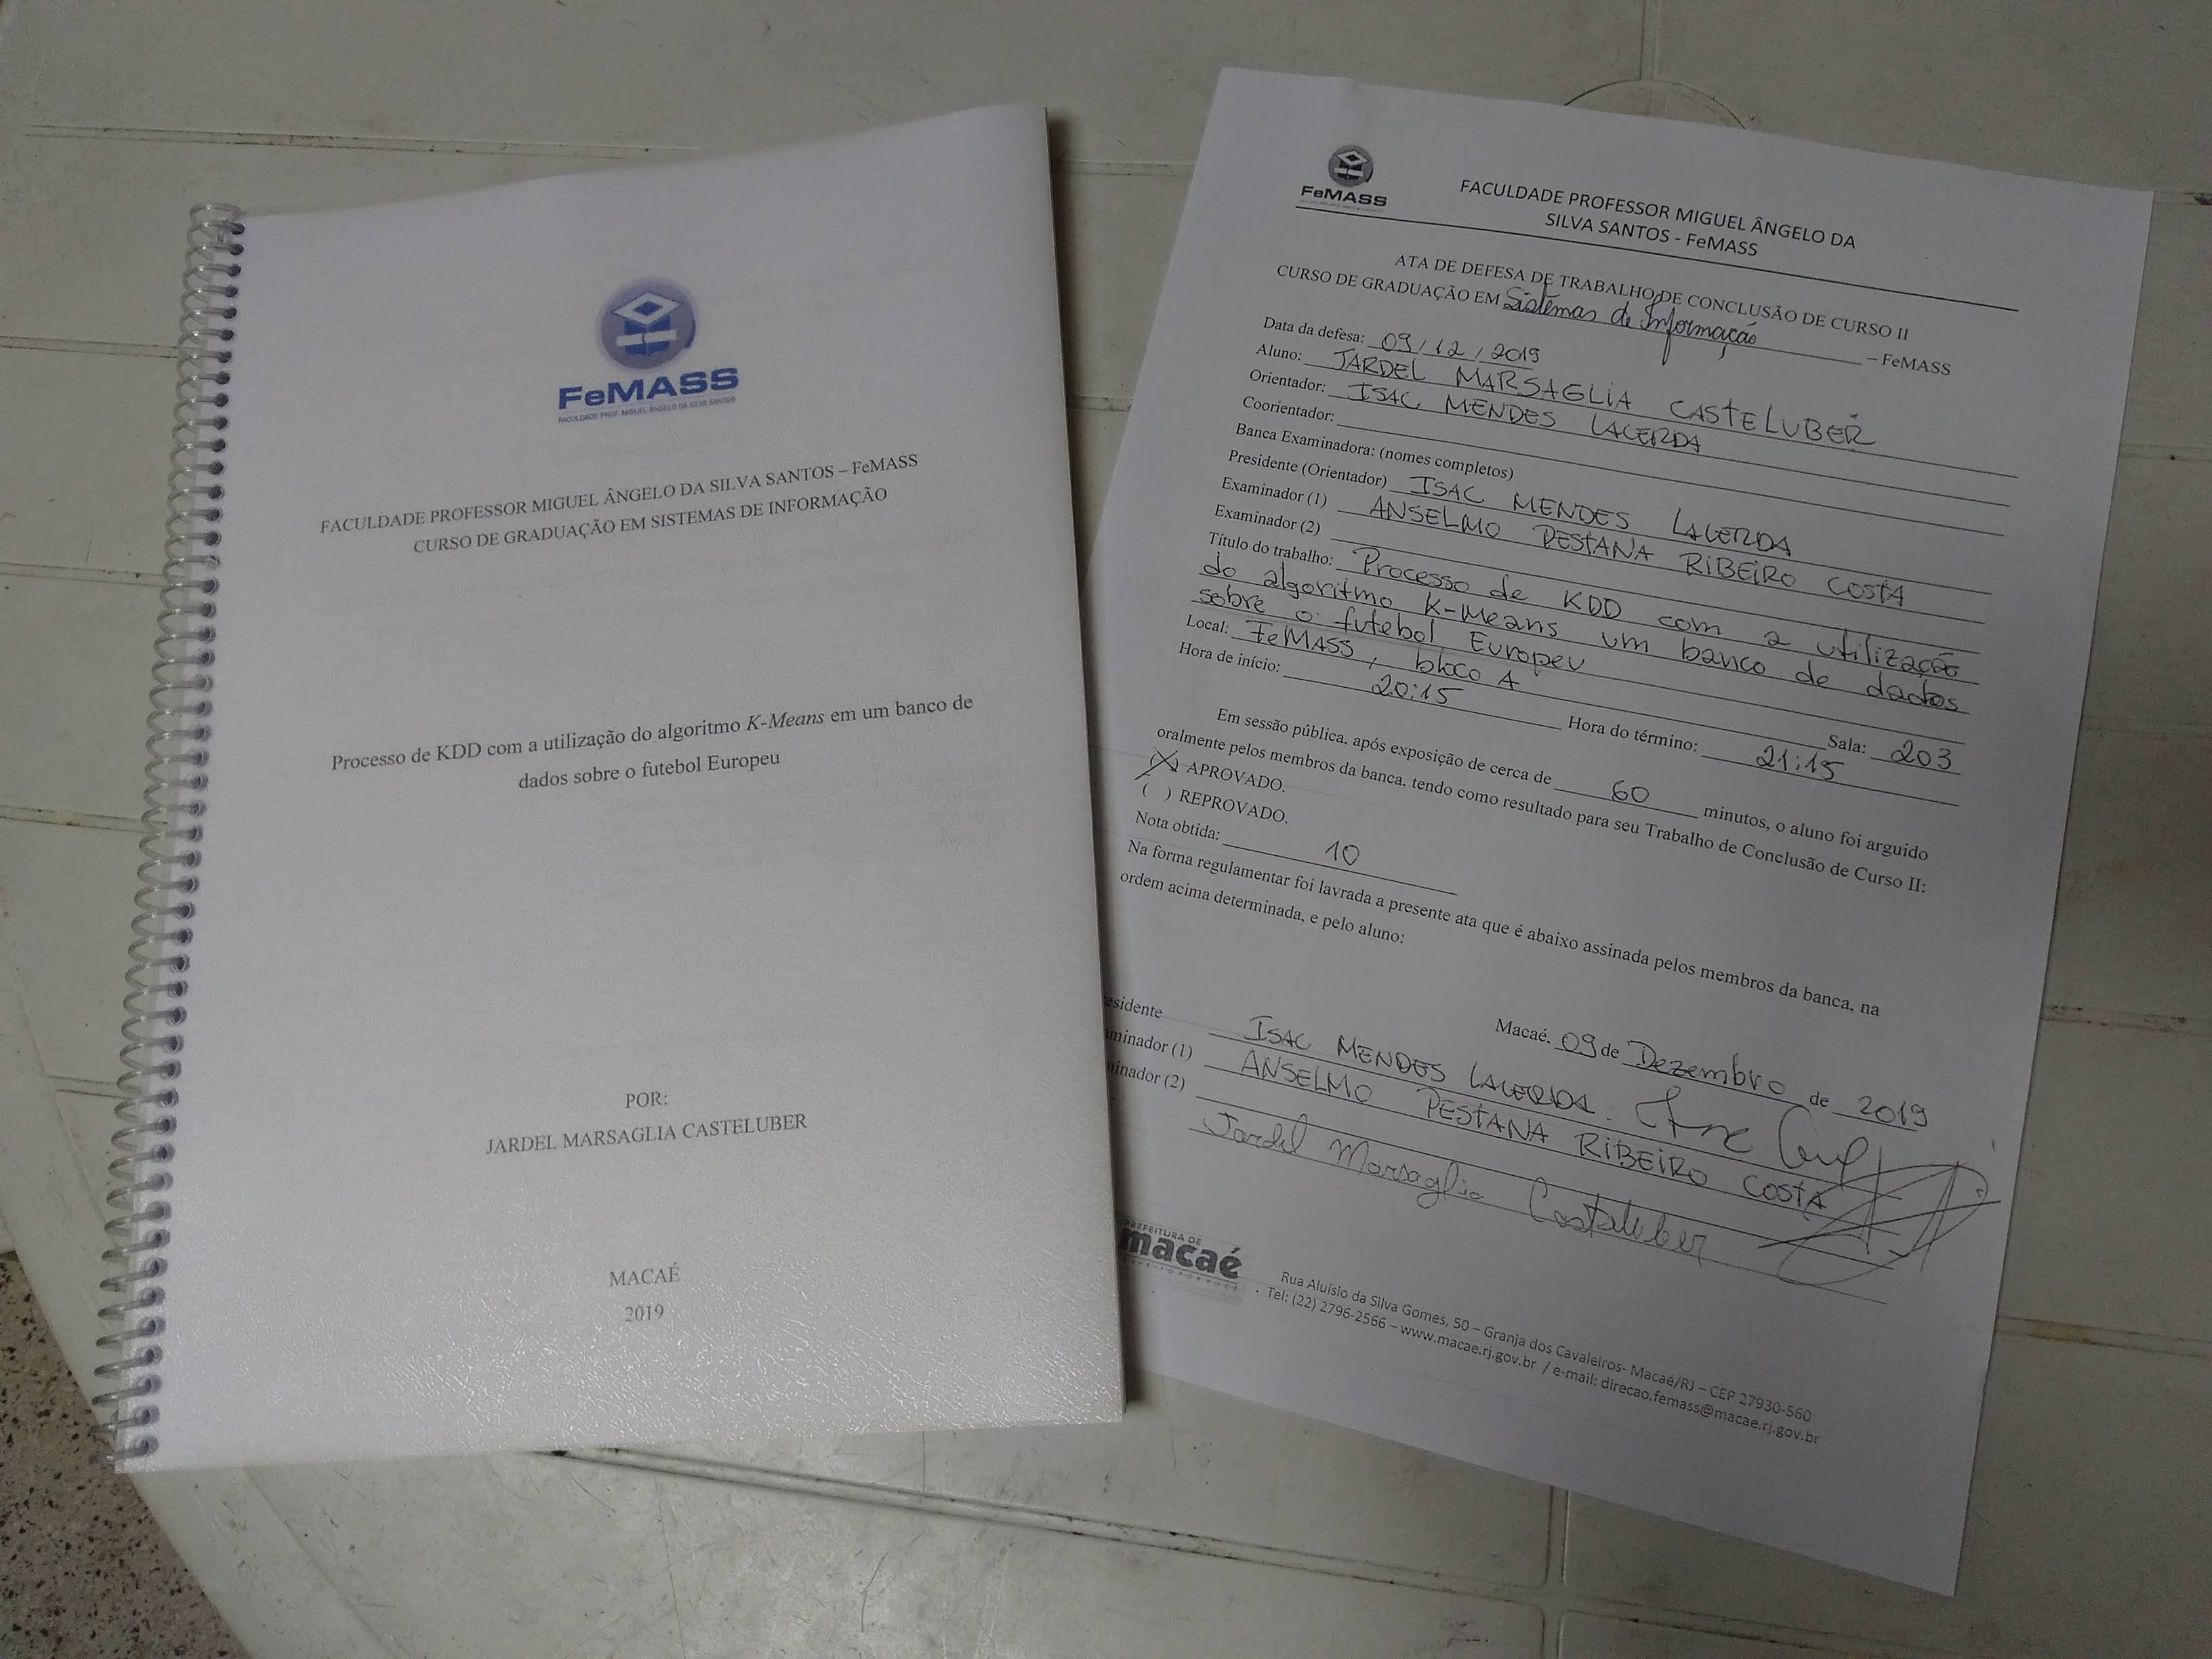 FeMASS
FACULDADE PROF. MIGUEL ÂNGELO DA SILVA SANTOS
FACULDADE PROFESSOR MIGUEL ÂNGELO DA SILVA SANTOS – FeMASS
CURSO DE GRADUAÇÃO EM SISTEMAS DE INFORMAÇÃO
Processo de KDD com a utilização do algoritmo K-Means em um banco de
dados sobre o futebol Europeu
POR:
JARDEL MARSAGLIA CASTELUBER
MACAÉ
2019
FeMASS
FACULDADE PROFESSOR MIGUEL ÂNGELO DA
SILVA SANTOS - FeMASS
ATA DE DEFESA DE TRABALHO DE CONCLUSÃO DE CURSO II
CURSO DE GRADUAÇÃO EM Sistemas de Informação – FeMASS
Data da defesa: 09/12/2019
Aluno: JARDEL MARSAGLIA CASTELUBER
Orientador: ISAC MENDES LACERDA
Coorientador:
Banca Examinadora: (nomes completos)
Presidente (Orientador) ISAC MENDES LACERDA
Examinador (1) ANSELMO PESTANA RIBEIRO COSTA
Examinador (2)
Título do trabalho: Processo de KDD com a utilização
do algoritmo K-Means um banco de dados
sobre o futebol Europeu
Local: FeMASS, bloco A Sala: 203
Hora de início: 20:15 Hora do término: 21:15
Em sessão pública, após exposição de cerca de 60 minutos, o aluno foi arguido
oralmente pelos membros da banca, tendo como resultado para seu Trabalho de Conclusão de Curso II:
(X) APROVADO.
( ) REPROVADO.
Nota obtida: 10
Na forma regulamentar foi lavrada a presente ata que é abaixo assinada pelos membros da banca, na
ordem acima determinada, e pelo aluno:
Macaé, 09 de Dezembro de 2019
esidente ISAC MENDES LACERDA
minador (1) ANSELMO PESTANA RIBEIRO COSTA
minador (2)
Jardel Marsaglia Casteluber
PREFEITURA DE
macaé
Rua Aluísio da Silva Gomes, 50 – Granja dos Cavaleiros- Macaé/RJ – CEP 27930-560
Tel: (22) 2796-2566 – www.macae.rj.gov.br / e-mail: direcao.femass@macae.rj.gov.br